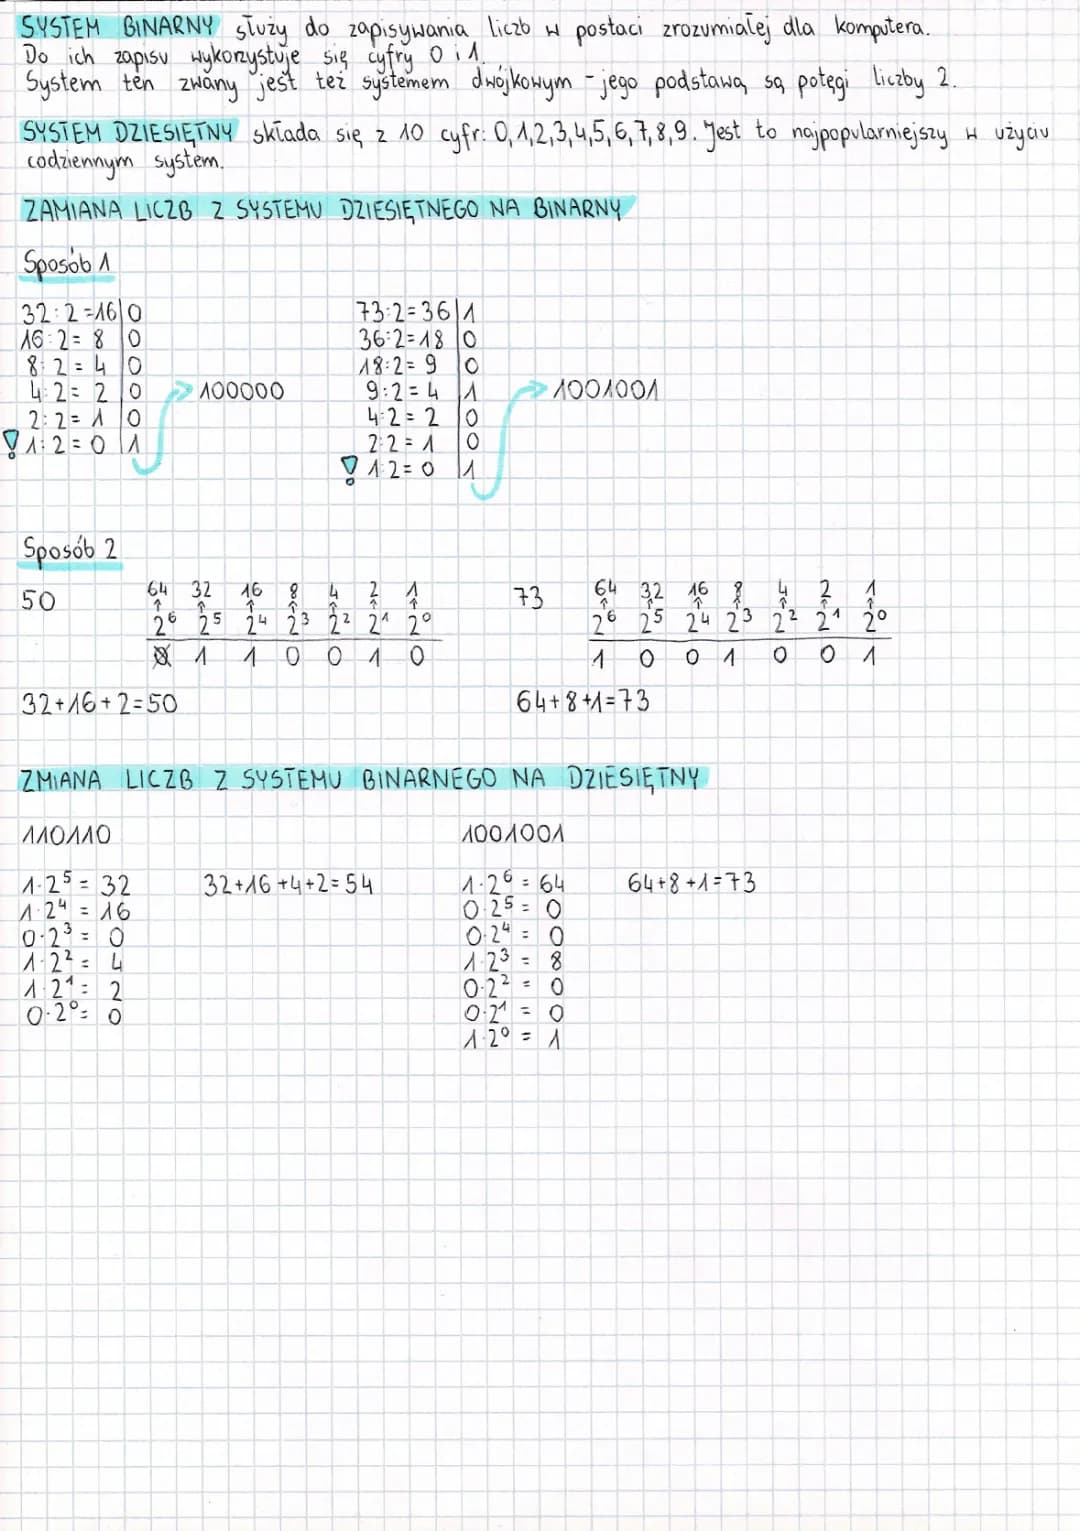 SYSTEM BINARNY służy do zapisywania liczb w postaci zrozumiałej dla komputera.
Do ich zapisu wykorzystuje się cyfry 0 i 1.
System ten zwany jest też systemem dwójkowym - jego podstawą są potęgi liczby 2.
SYSTEM DZIESIĘTNY składa się z 10 cyfr: 0,1,2,3,4,5,6,7,8,9. Jest to najpopularniejszy w użyciu
codziennym system.
ZAMIANA LICZB Z SYSTEMU DZIESIĘTNEGO NA BINARNY
Sposób 1
32:2=16|0
16:2=8|0
8:2=4|0
4:2=2|0 → 100000
2:2=1|0
! 1:2=0|1
73:2=36|1
36:2=18|0
18:2=9|0
9:2=4|1 → 1001001
4:2=2|0
2:2=1|0
! 1:2=0|1
Sposób 2
50
64 32 16 8 4 2 1
↑ ↑ ↑ ↑ ↑ ↑ ↑
2⁶ 2⁵ 2⁴ 2³ 2² 2¹ 2⁰
0 1 1 0 0 1 0
32+16+2=50
73
64 32 16 8 4 2 1
↑ ↑ ↑ ↑ ↑ ↑ ↑
2⁶ 2⁵ 2⁴ 2³ 2² 2¹ 2⁰
1 0 0 1 0 0 1
64+8+1=73
ZMIANA LICZB Z SYSTEMU BINARNEGO NA DZIESIĘTNY
110110
1·2⁵ = 32 32+16+4+2=54
1·2⁴ = 16
0·2³ = 0
1·2² = 4
1·2¹ = 2
0·2⁰ = 0
1001001
1·2⁶ = 64 64+8+1=73
0·2⁵ = 0
0·2⁴ = 0
1·2³ = 8
0·2² = 0
0·2¹ = 0
1·2⁰ = 1